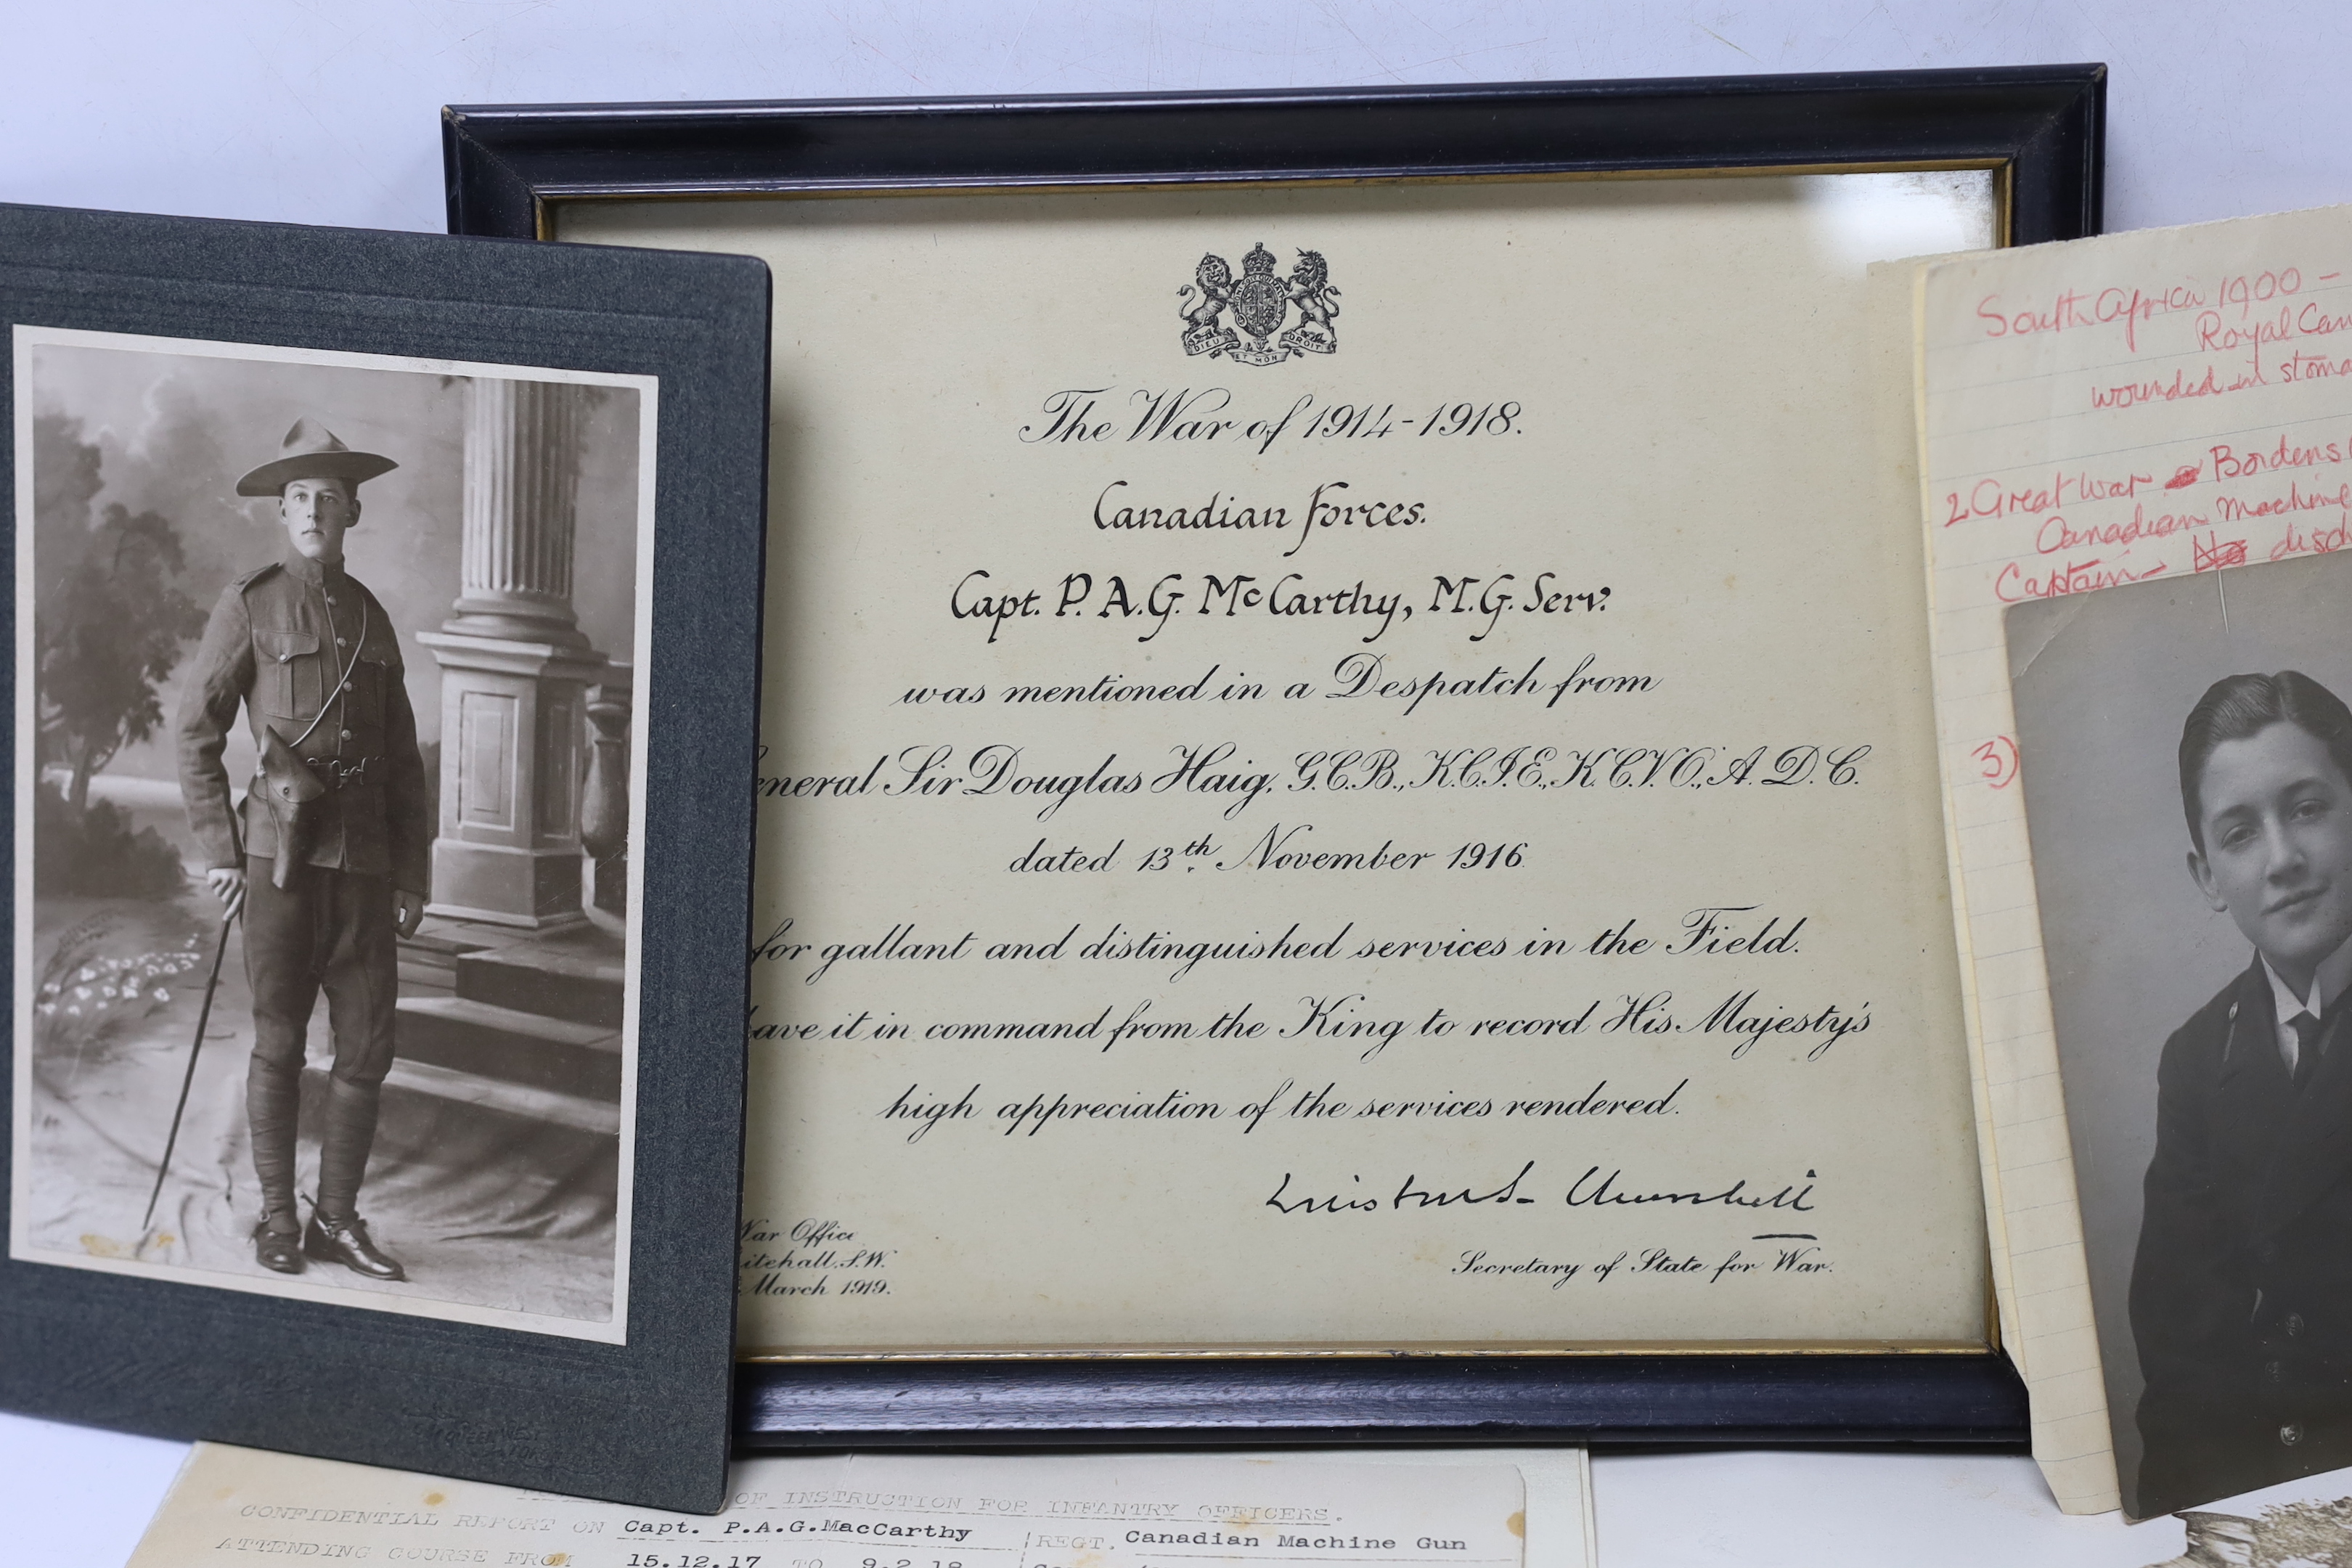 DIEU ET MON DROIT
The War of 1914-1918.
Canadian Forces.
Capt. P. A. G. McCarthy, M. G. Serv.
was mentioned in a Despatch from
eneral Sir Douglas Haig, G.C.B., K.C.I.E., K.C.V.O., A.D.C.
dated 13th November 1916.
for gallant and distinguished services in the Field.
ave it in command from the King to record His Majesty's
high appreciation of the services rendered.
Winston S. Churchill
Secretary of State for War.
War Office
itehall. S.W.
March 1919.
South Africa 1900 -
Royal Can
wounded in stoma
2 Great War Bordens
Canadian Machine
Captain - No disch
3)
QUEEN WEST
OF INSTRUCTION FOR INFANTRY OFFICERS.
CONFIDENTIAL REPORT ON Capt. P.A.G.MacCarthy REGT. Canadian Machine Gun
ATTENDING COURSE FROM 15.12.17 TO 9.2.18